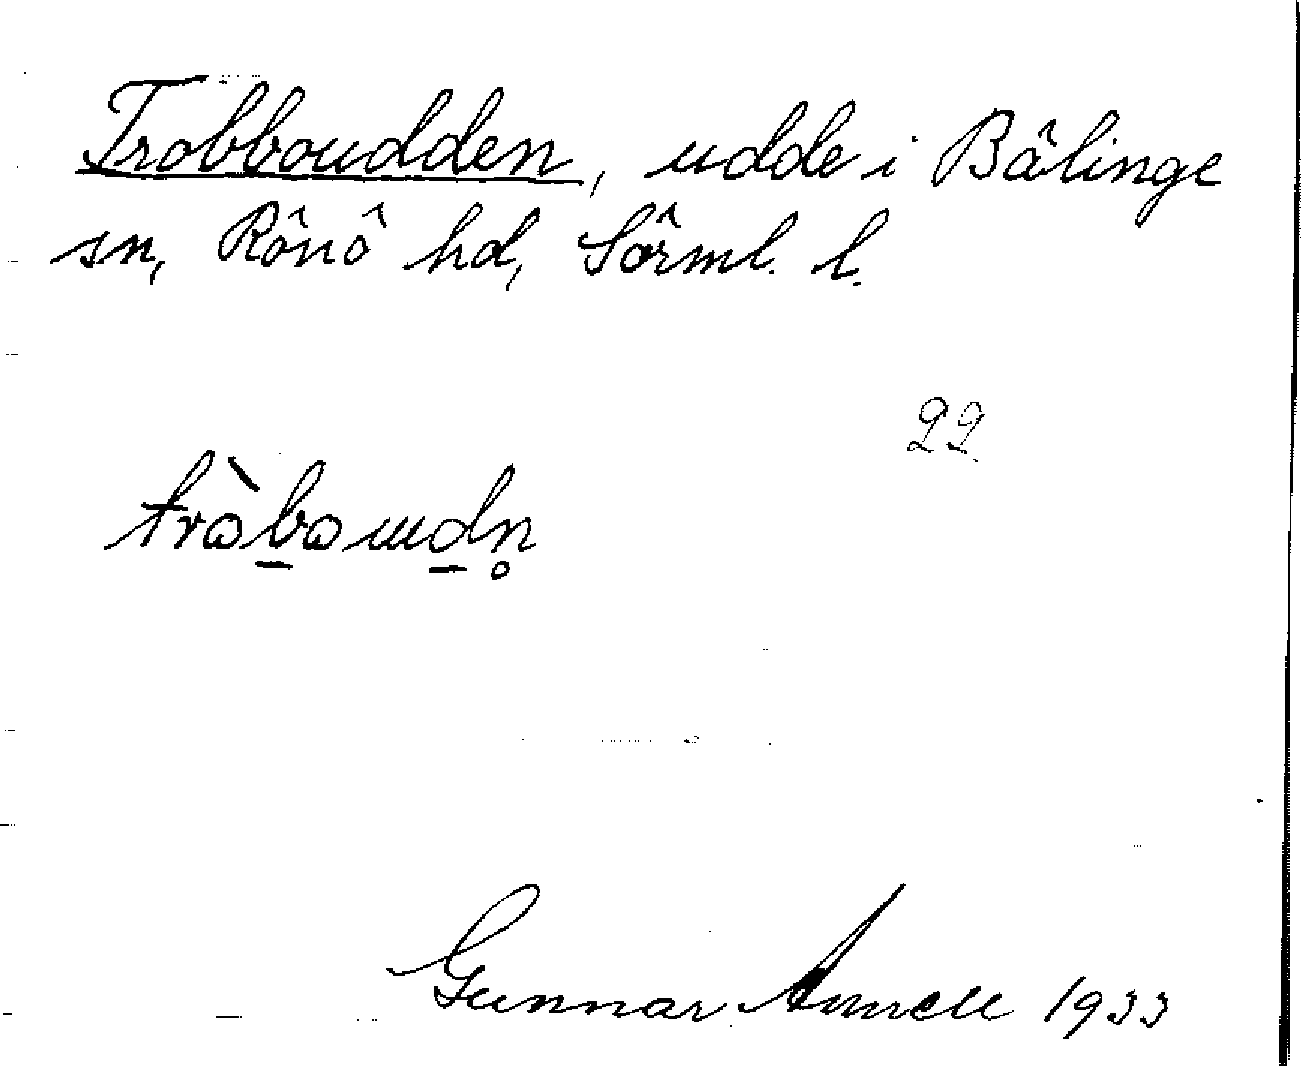 Trobboudden, udde i Bälinge
sn, Rönö hd, Sörml. l.
22
tròboudn̥
Gunnar Annell 1933